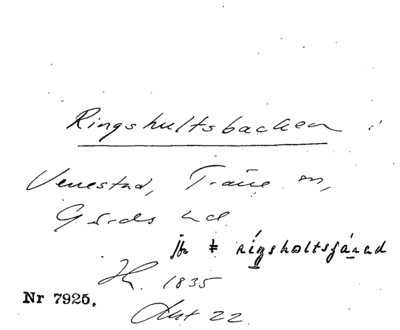 Ringshultsbacken :
Venestad, Träne sn,
Gärds hd
jfr ‡ rígsholtsgárad
1835
Nr 7925.
22